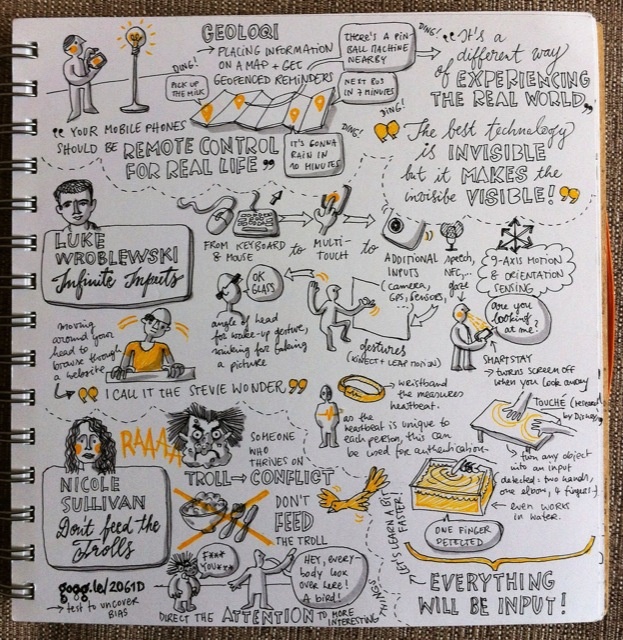 GEOLOQI
→ PLACING INFORMATION
ON A MAP + GET
GEOFENCED REMINDERS
DING!
PICK UP
THE MILK
THERE'S A PIN-
BALL MACHINE
NEARBY
DING!
NEXT BUS
IN 7 MINUTES
DING!
IT'S GONNA
RAIN IN
10 MINUTES
DING!
"YOUR MOBILE PHONES
SHOULD BE REMOTE CONTROL
FOR REAL LIFE"
"It's a
different way
of EXPERIENCING
THE REAL WORLD"
"The best technology
is INVISIBLE
but it MAKES the
invisible VISIBLE!"
LUKE
WROBLEWSKI
Infinite Inputs
FROM KEYBOARD
& MOUSE
to
MULTI-
TOUCH
to
ADDITIONAL
INPUTS
(camera,
GPS, sensors,
speech,
NFC,
gaze
9-AXIS MOTION
& ORIENTATION
SENSING
OK
GLASS
angle of head
for wake-up gesture,
winking for taking
a picture
gestures
(KINECT + LEAP MOTION)
are you
looking
at me?
SMARTSTAY
→ turns screen off
when you look away
moving
around your
head to
browse through
a website
"I CALL IT THE STEVIE WONDER."
wristband
the measures
heartbeat.
as the
heartbeat is unique to
each person, this can
be used for authentication
TOUCHÉ (research
by Disney)
turn any object
into an input
detected: two hands,
one elbow, 4 fingers
even works
in water.
ONE FINGER
DETECTED
EVERYTHING
WILL BE INPUT!
NICOLE
SULLIVAN
Don't feed the
Trolls
RAAAA
SOMEONE
WHO
THRIVES ON
TROLL → CONFLICT
DON'T
FEED
THE TROLL
F***
YOU**
HEY, EVERY-
BODY LOOK
OVER HERE!
A bird!
DIRECT THE ATTENTION TO MORE
INTERESTING
THINGS
goo.gl/2061D
→ test to uncover
BIAS
LET'S LEARN A BIT
FASTER.